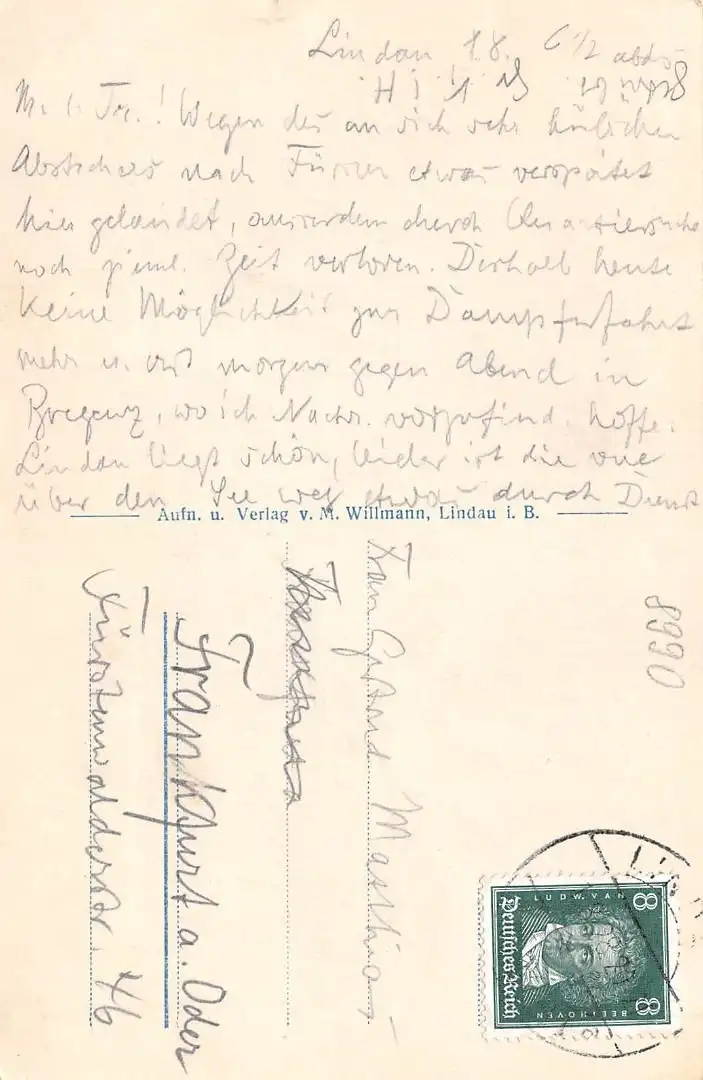 Lindau, 18. 6 1/2 abds
M. l. Fr.! Wegen des an sich sehr hübschen
Abstechers nach Füssen etwas verspätet
hier gelandet, ausserdem durch Quartiersuche
noch zieml. Zeit verloren. Deshalb heute
keine Möglichkeit zur Dampferfahrt
mehr u. erst morgen gegen Abend in
Bregenz, wo ich Nachr. vorzufind. hoffe.
Lindau liegt schön, leider ist die
über den See weg etwas durch Dunst
Aufn. u. Verlag v. M. Willmann, Lindau i. B.
Frau Gertrud Matthias
Frankfurt a. Oder
Fürstenwalderstr. 46
8990
8 8
LUDW. VAN
BEETHOVEN
Deutsches Reich